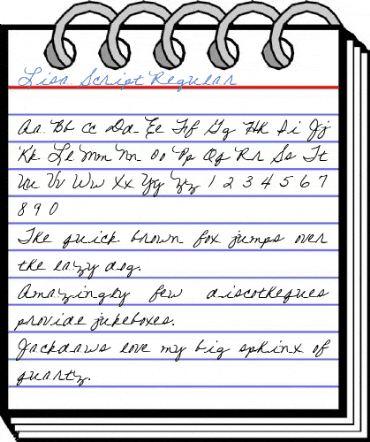 Lisa Script Regular
Aa Bb Cc Dd Ee Ff Gg Hh Ii Jj
Kk Ll Mm Nn Oo Pp Qq Rr Ss Tt
Uu Vv Ww Xx Yy Zz 1 2 3 4 5 6 7
8 9 0
The quick brown fox jumps over
the lazy dog.
Amazingly few discotheques
provide jukeboxes.
Jackdaws love my big sphinx of
quartz.